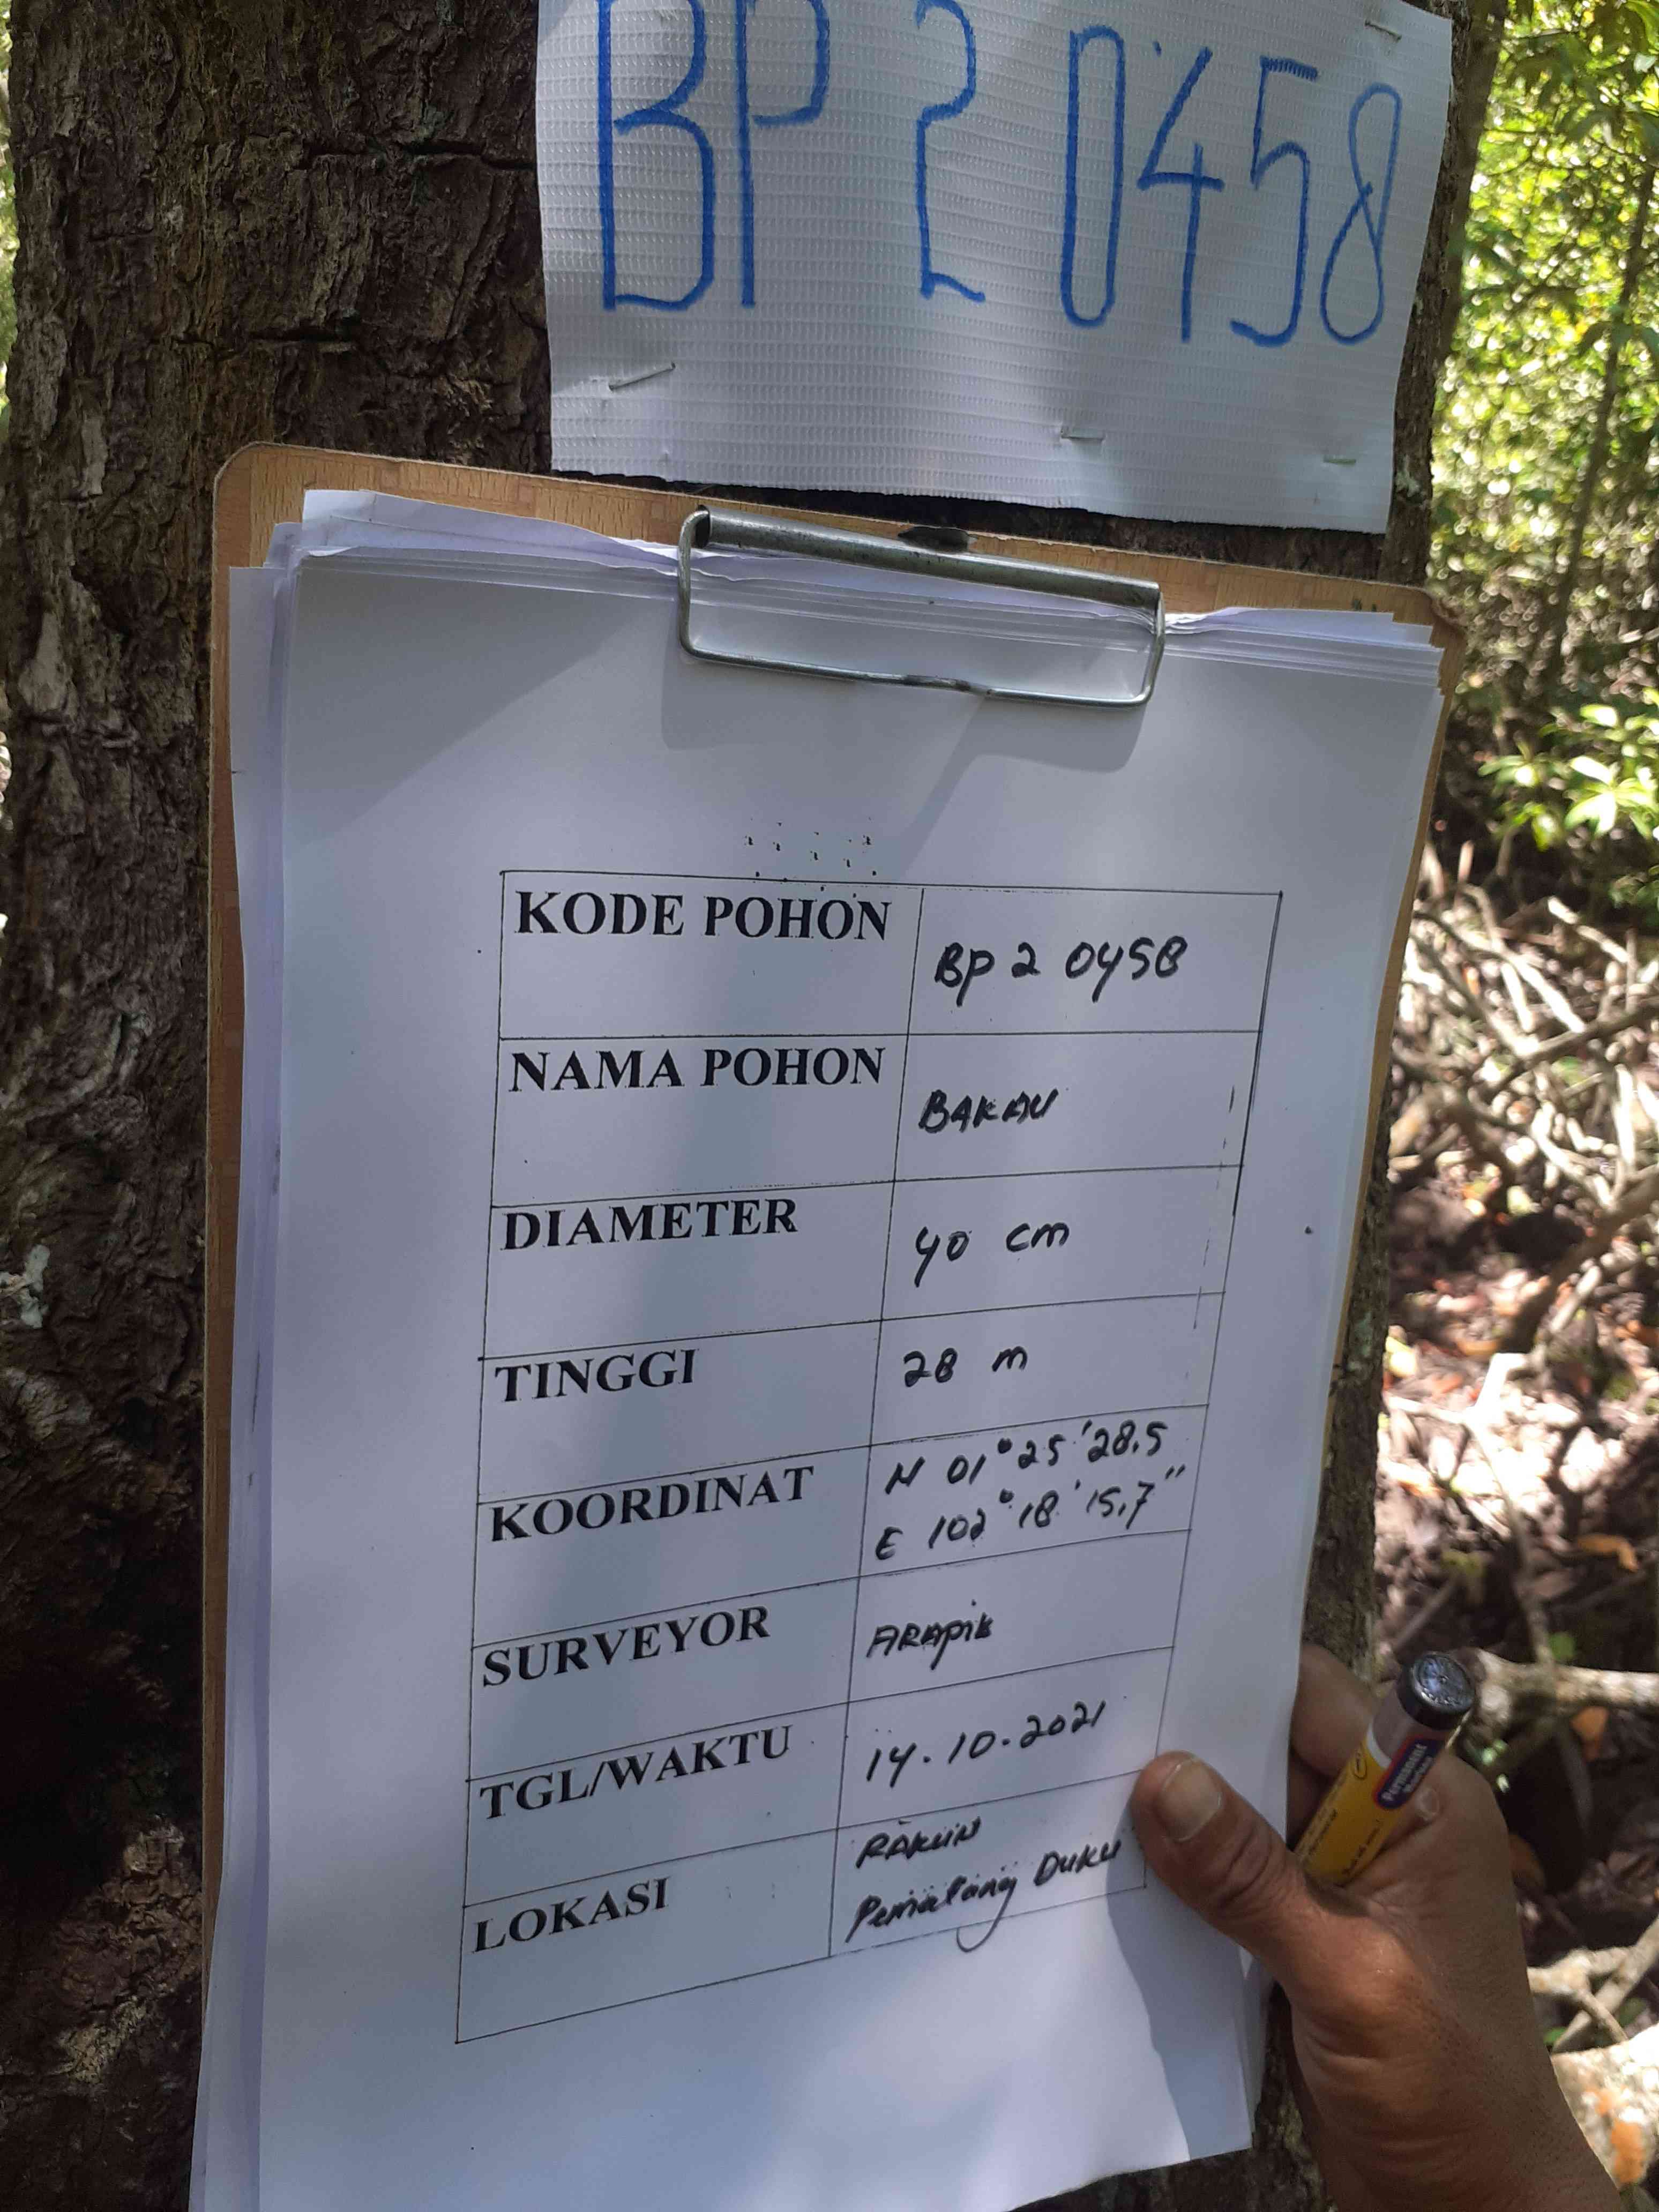 BP 2 0458
KODE POHON
BP 2 0458
NAMA POHON
BAKAU
DIAMETER
40 cm
TINGGI
28 m
KOORDINAT
N 01° 25' 28.5
E 102° 18' 15,7"
SURVEYOR
ARAPIK
TGL/WAKTU
14.10.2021
LOKASI
RAKUN
Pematang DUKU
Permanent